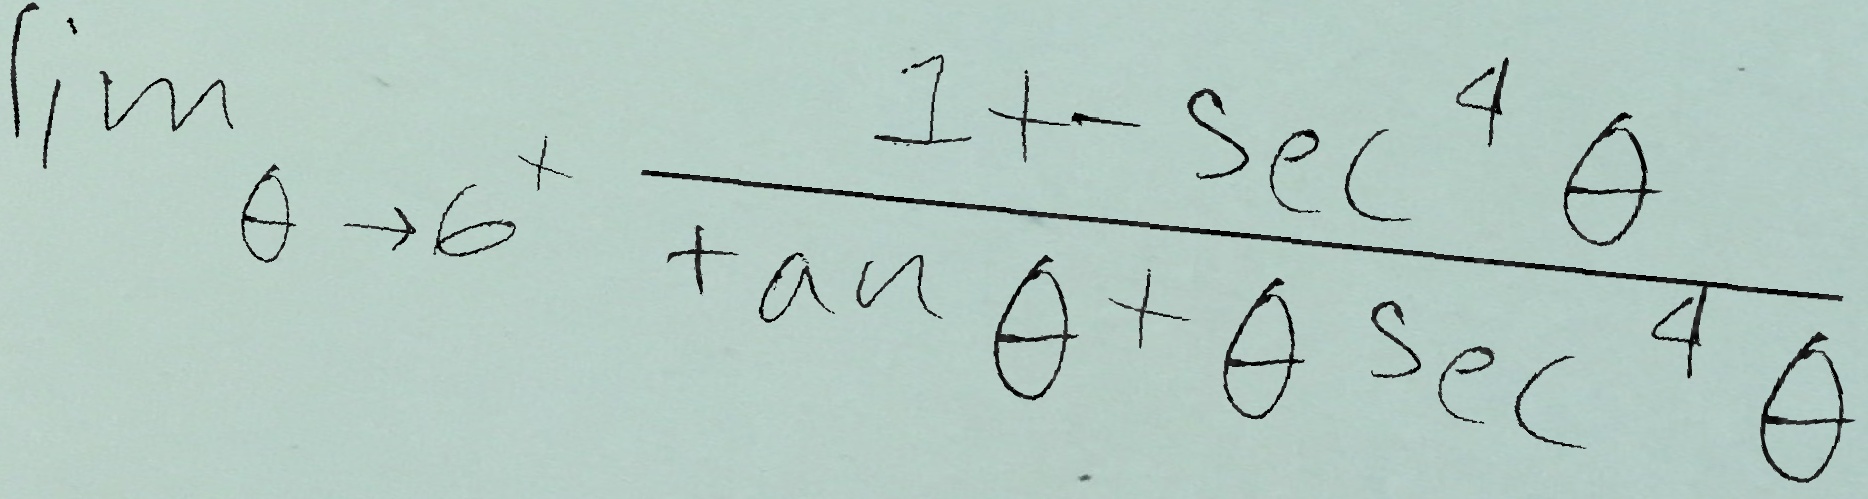 \lim_{\theta \to 6^+} \frac{1 + - \sec^4 \theta}{\tan \theta + \theta \sec^4 \theta}